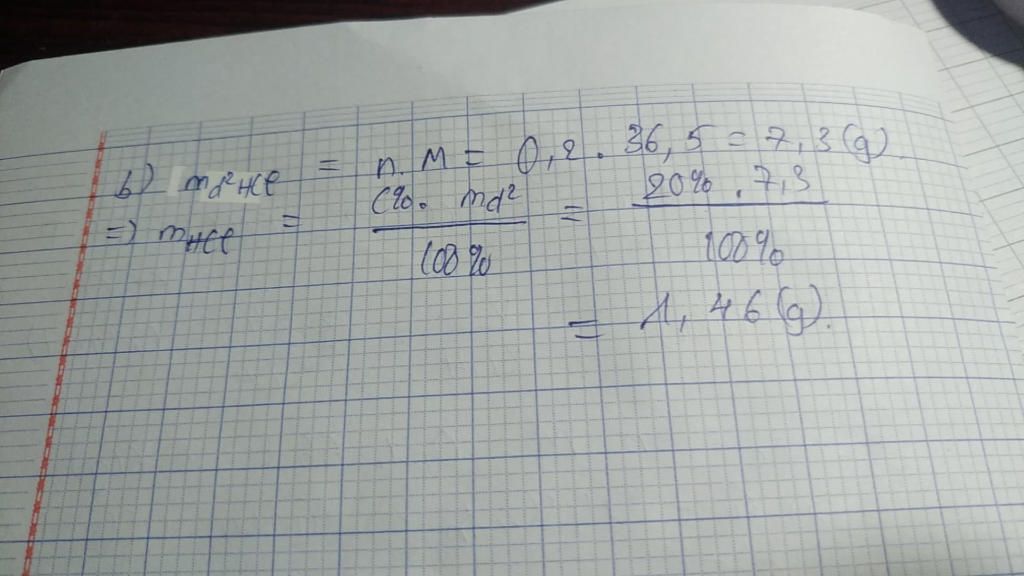 b) md² HCl = n. M = 0,2 . 36,5 = 7,3 (g).
=) mHCl = C%. md² / 100% = 20% . 7,3 / 100%
= 1,46 (g).